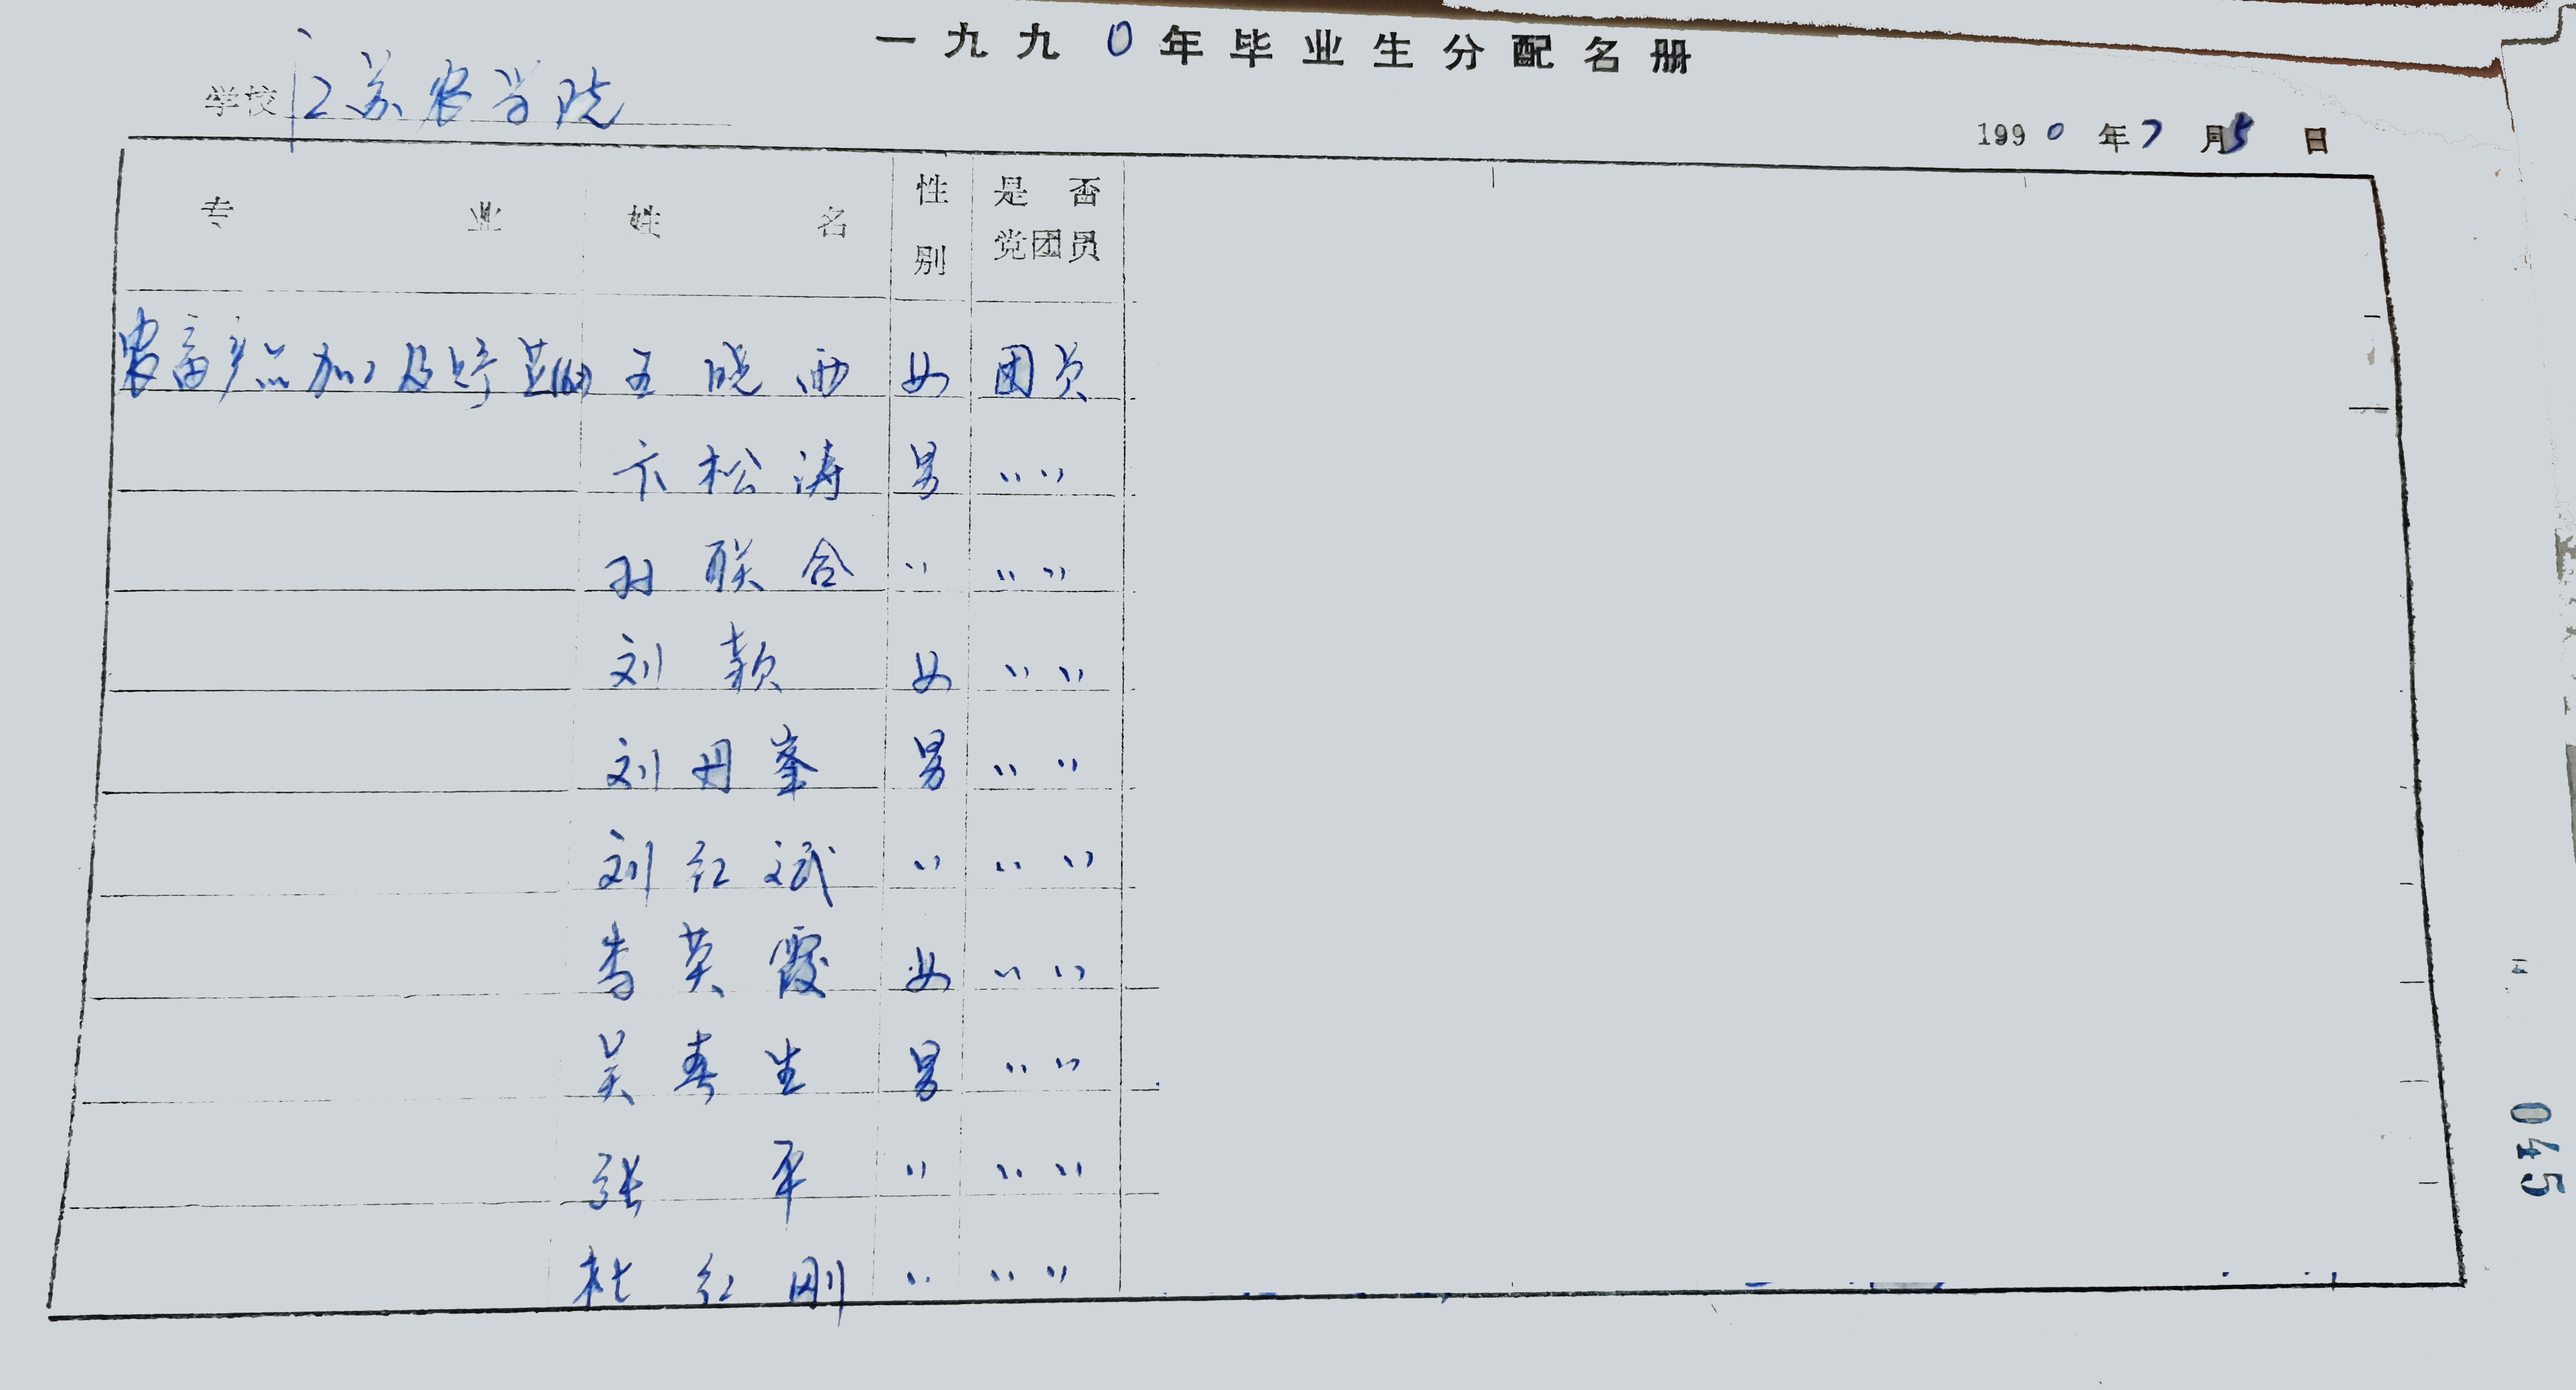 一九九0年毕业生分配名册
学校 江苏农学院
1990年7月5日
专业 姓名 性别 是否党团员
农畜产品加工及贮藏 王晓西 女 团员
卞松涛 男 〃〃
孙联合 〃 〃〃
刘颖 女 〃〃
刘丹峯 男 〃〃
刘红斌 〃 〃〃
李英霞 女 〃〃
吴春生 男 〃〃
张平 〃 〃〃
杜红刚 〃 〃〃
045